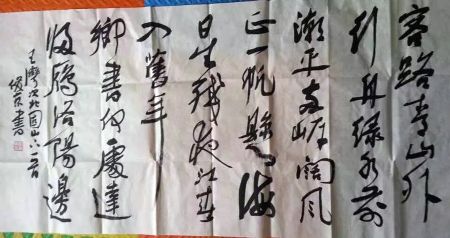 客路青山外
行舟绿水前
潮平兩岸闊風
正一帆懸海
日生殘夜江春
入舊年
鄉書何處達
歸雁洛陽邊
王灣次北固山下
書